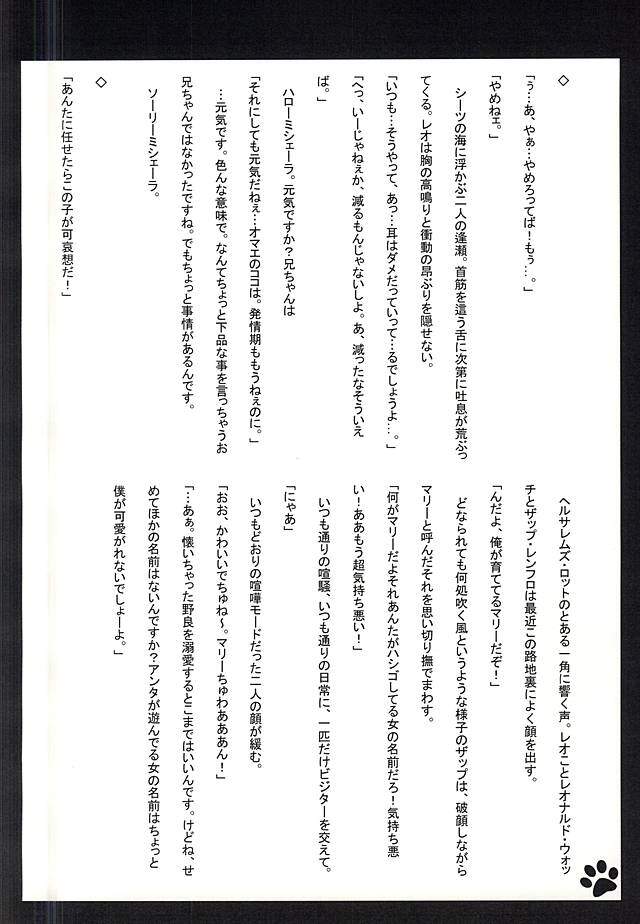 ◇
「ぅ…あ、やぁ…やめろってば！もぅ…。」
「やめねェ。」
シーツの海に浮かぶ二人の逢瀬。首筋を這う舌に次第に吐息が荒ぶっ
てくる。レオは胸の高鳴りと衝動の昂ぶりを隠せない。
「いつも…そうやって、あっ…耳はダメだっていって…るでしょうよ…。」
「へっ、いーじゃねぇか、減るもんじゃないしよ。あ、減ったなそういえ
ば。」
ハローミシェーラ。元気ですか？兄ちゃんは
「それにしても元気だねぇ…オマエのココは。発情期ももうねぇのに。」
…元気です。色んな意味で。なんてちょっと下品な事を言っちゃうお
兄ちゃんではなかったですね。でもちょっと事情があるんです。
ソーリーミシェーラ。
◇
「あんたに任せたらこの子が可哀想だ！」
ヘルサレムズ・ロットのとある一角に響く声。レオことレオナルド・ウォッ
チとザップ・レンフロは最近この路地裏によく顔を出す。
「んだよ、俺が育ててるマリーだぞ！」
どなられても何処吹く風というような様子のザップは、破顔しながら
マリーと呼んだそれを思い切り撫でまわす。
「何がマリーだよそれあんたがハシゴしてる女の名前だろ！気持ち悪
い！ああもう超気持ち悪い！」
いつも通りの喧騒、いつも通りの日常に、一匹だけビジターを交えて。
「にゃあ」
いつもどおりの喧嘩モードだった二人の顔が緩む。
「おお、かわいいでちゅね～。マリーちゅわあああん！」
「…あぁ。懐いちゃった野良を溺愛するとこまではいいんです。けどね、せ
めてほかの名前はないんですか？アンタが遊んでる女の名前はちょっと
僕が可愛がれないでしょーよ。」